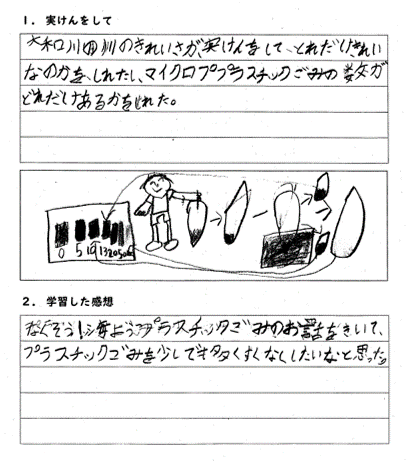 1. 実けんをして
大和川の川のきれいさが、実けんをして、どれだけきれい
なのかを、しれたし、マイクロププラスチックごみの数が
どれだけあるかをしれた。
0 5 10 13 20 50
2. 学習した感想
なくそう!海ようプラスチックごみのお話をきいて、
プラスチックごみを少しでも すくなくしたいなと思った。